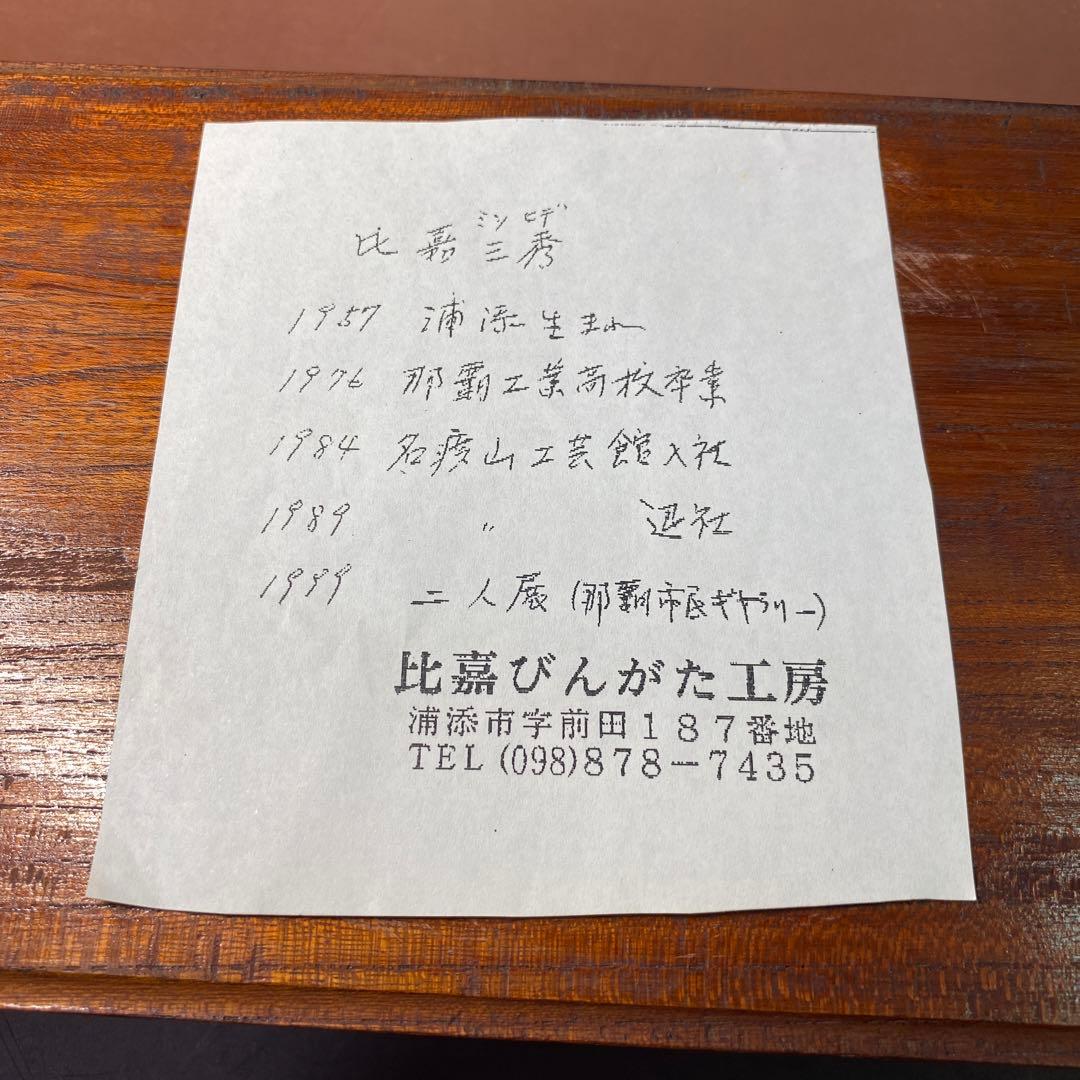 ミツ ヒデ
比嘉三秀
1957 浦添生まれ
1976 那覇工業高校卒業
1984 名渡山工芸館入社
1989 〃 退社
1999 二人展(那覇市民ギャラリー)
比嘉びんがた工房
浦添市字前田187番地
TEL(098)878-7435